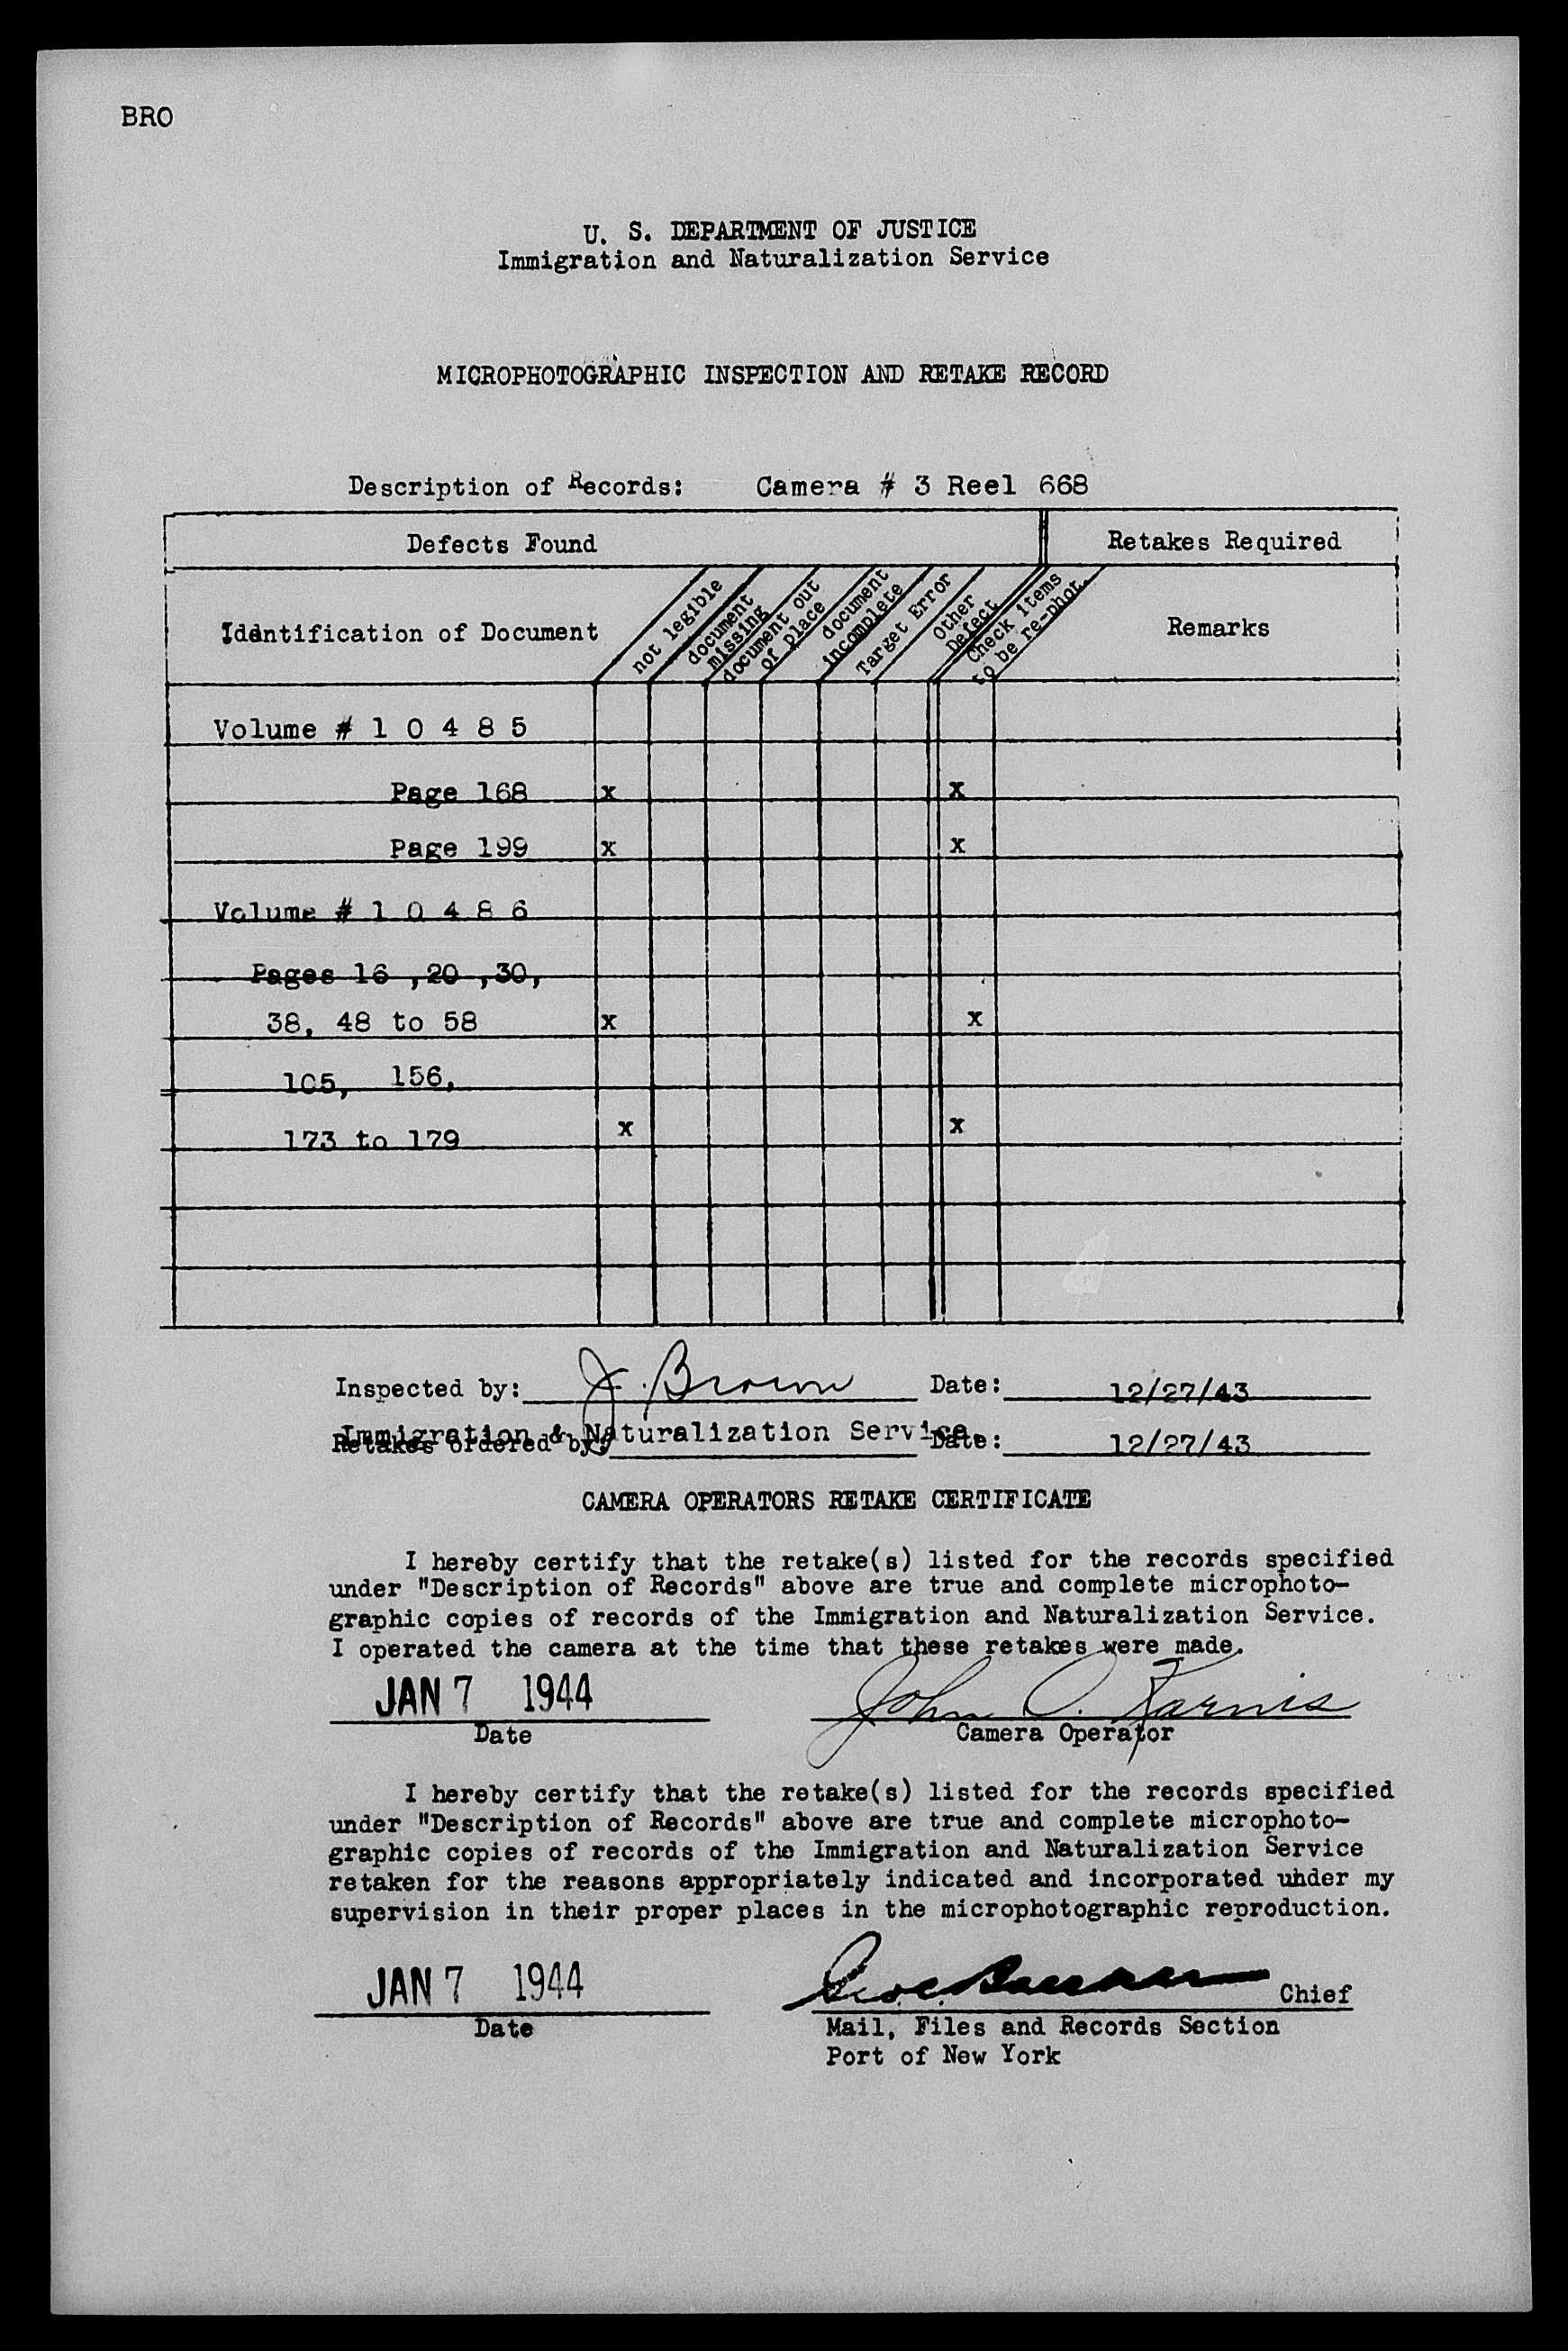 BRO
U. S. DEPARTMENT OF JUSTICE
Immigration and Naturalization Service
MICROPHOTOGRAPHIC INSPECTION AND RETAKE RECORD
Description of Records: Camera # 3 Reel 668
Defects Found Retakes Required
Identification of Document
not legible
document missing
document out of place
document incomplete
Target Error
Other Defect
Check items to be re-phot.
Remarks
Volume # 1 0 4 8 5
Page 168 x x
Page 199 x x
Volume # 1 0 4 8 6
Pages 16 ,20 ,30,
38, 48 to 58 x x
105, 156,
173 to 179 x x
Inspected by: J. Brown Date: 12/27/43
Immigration & Naturalization Service.
Retakes ordered by: Date: 12/27/43
CAMERA OPERATORS RETAKE CERTIFICATE
I hereby certify that the retake(s) listed for the records specified
under "Description of Records" above are true and complete microphoto-
graphic copies of records of the Immigration and Naturalization Service.
I operated the camera at the time that these retakes were made.
JAN 7 1944 John
Date Camera Operator
I hereby certify that the retake(s) listed for the records specified
under "Description of Records" above are true and complete microphoto-
graphic copies of records of the Immigration and Naturalization Service
retaken for the reasons appropriately indicated and incorporated under my
supervision in their proper places in the microphotographic reproduction.
JAN 7 1944 Chief
Date Mail, Files and Records Section
Port of New York